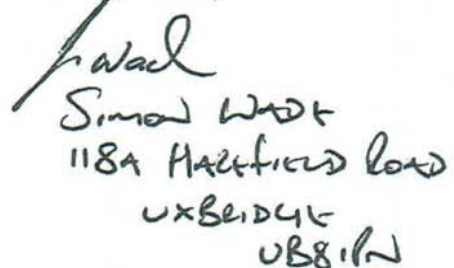 Simon WADE
118A HAREFIELD ROAD
UXBRIDGE
UB8 1PN